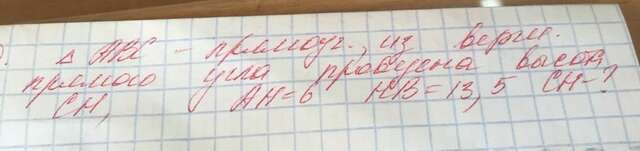 △ ABC - прямоуг., из верш.
прямого угла проведена высота
CH, AH=6 HB=13,5 CH-?